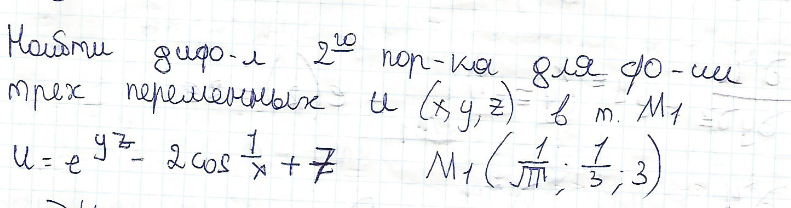 Найти диф-л 2го пор-ка для ф-ии
трех переменных u (x, y, z) в т. M1
u = e^yz - 2cos 1/x + 7 M1 (1/√π; 1/3; 3)